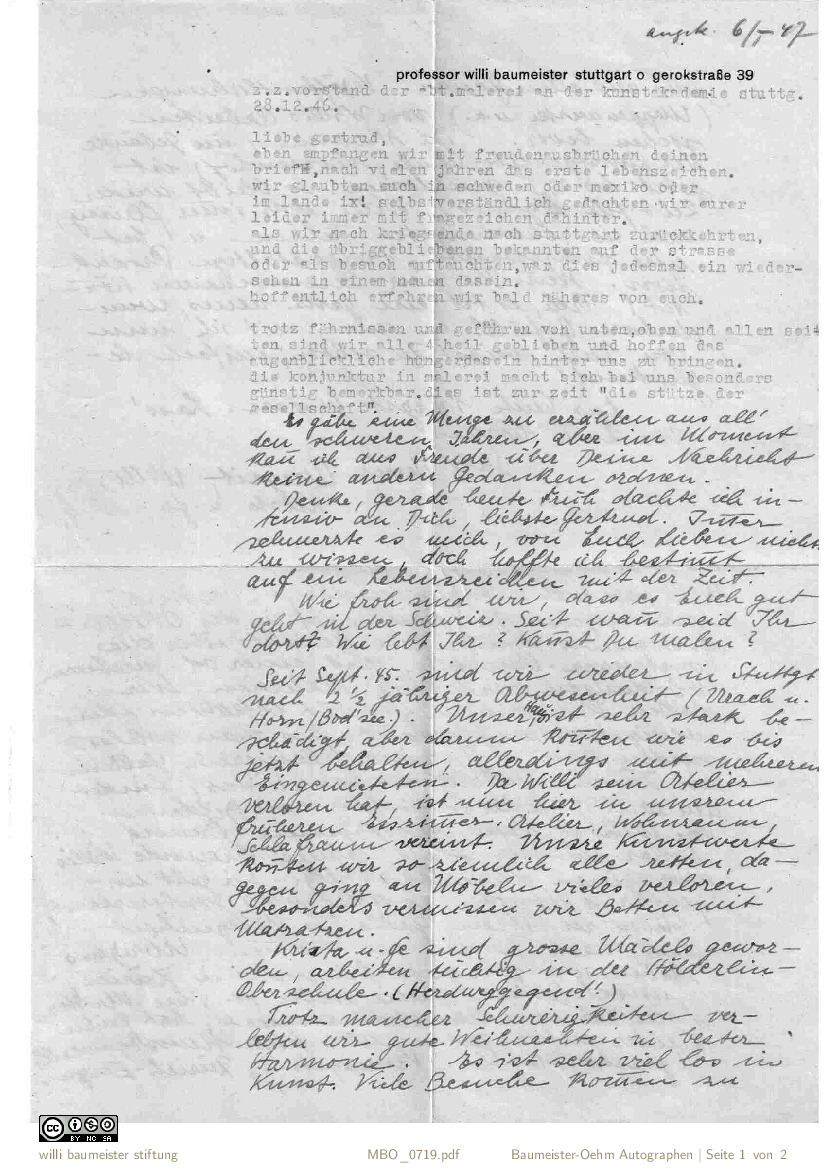 angek. 6/I 47
professor willi baumeister stuttgart o gerokstraße 39
z.z.vorstand der abt.malerei an der kunstakademie stuttg.
28.12.46.
liebe gertrud,
eben empfangen wir mit freudenausbrüchen deinen
brief,nach vielen jahren das erste lebenszeichen.
wir glaubten euch in schweden oder mexiko oder
im lande ix! selbstverständlich gedachten wir eurer
leider immer mit fragezeichen dahinter.
als wir nach kriegsende nach stuttgart zurückkehrten,
und die übriggebliebenen bekannten auf der strasse
oder als besuch auftauchten,war dies jedesmal ein wieder-
sehen in einem neuen dasein.
hoffentlich erfahren wir bald näheres von euch.
trotz fährnissen und gefahren von unten,oben und allen seit
ten, sind wir alle 4 heil geblieben und hoffen das
augenblickliche hungerdasein hinter uns zu bringen.
die konjunktur in malerei macht sich bei uns besonders
günstig bemerkbar.dies ist zur zeit "die stütze der
gesellschaft".
Es gäbe eine Menge zu erzählen aus all'
den schweren Jahren, aber im Moment
kan̄ ich aus Freude über Deine Nachricht
keine andern Gedanken ordnen.
Denke, gerade heute Früh dachte ich in-
tensiv an Dich, liebste Gertrud. Im̄er
schmerzte es mich, von Euch Lieben nichts
zu wissen, doch hoffte ich bestim̄t
auf ein Lebenszeichen mit der Zeit.
Wie froh sind wir, dass es Euch gut
geht in der Schweiz. Seit wan̄ seid Ihr
dort? Wie lebt Ihr? Kan̄st Du malen?
Seit Sept. 45. sind wir wieder in Stuttgt
nach 2 ½ jähriger Abwesenheit (Urach u.
Horn/Bod'see.). Unser Haus ist sehr stark be-
schädigt aber darum kon̄ten wir es bis
jetzt behalten, allerdings mit mehreren
Eingemieteten. Da Willi sein Atelier
verloren hat, ist nun hier in unserem
früheren Esszim̄er. Atelier, Wohnraum,
Schlafraum vereint. Unsre Kunstwerke
kon̄ten wir so ziemlich alle retten, da-
gegen ging an Möbeln vieles verloren,
besonders vermissen wir Betten mit
Matratzen.
Krista u. Fe sind grosse Mädels gewor-
den, arbeiten tüchtig in der Hölderlin-
Oberschule. (Herdweggegend!)
Trotz mancher Schwierigkeiten ver-
lebten wir gute Weihnachten in bester
Harmonie. Es ist sehr viel los in
Kunst. Viele Besuche kom̄en zu
CC BY NC SA
willi baumeister stiftung
MBO_0719.pdf
Baumeister-Oehm Autographen | Seite 1 von 2